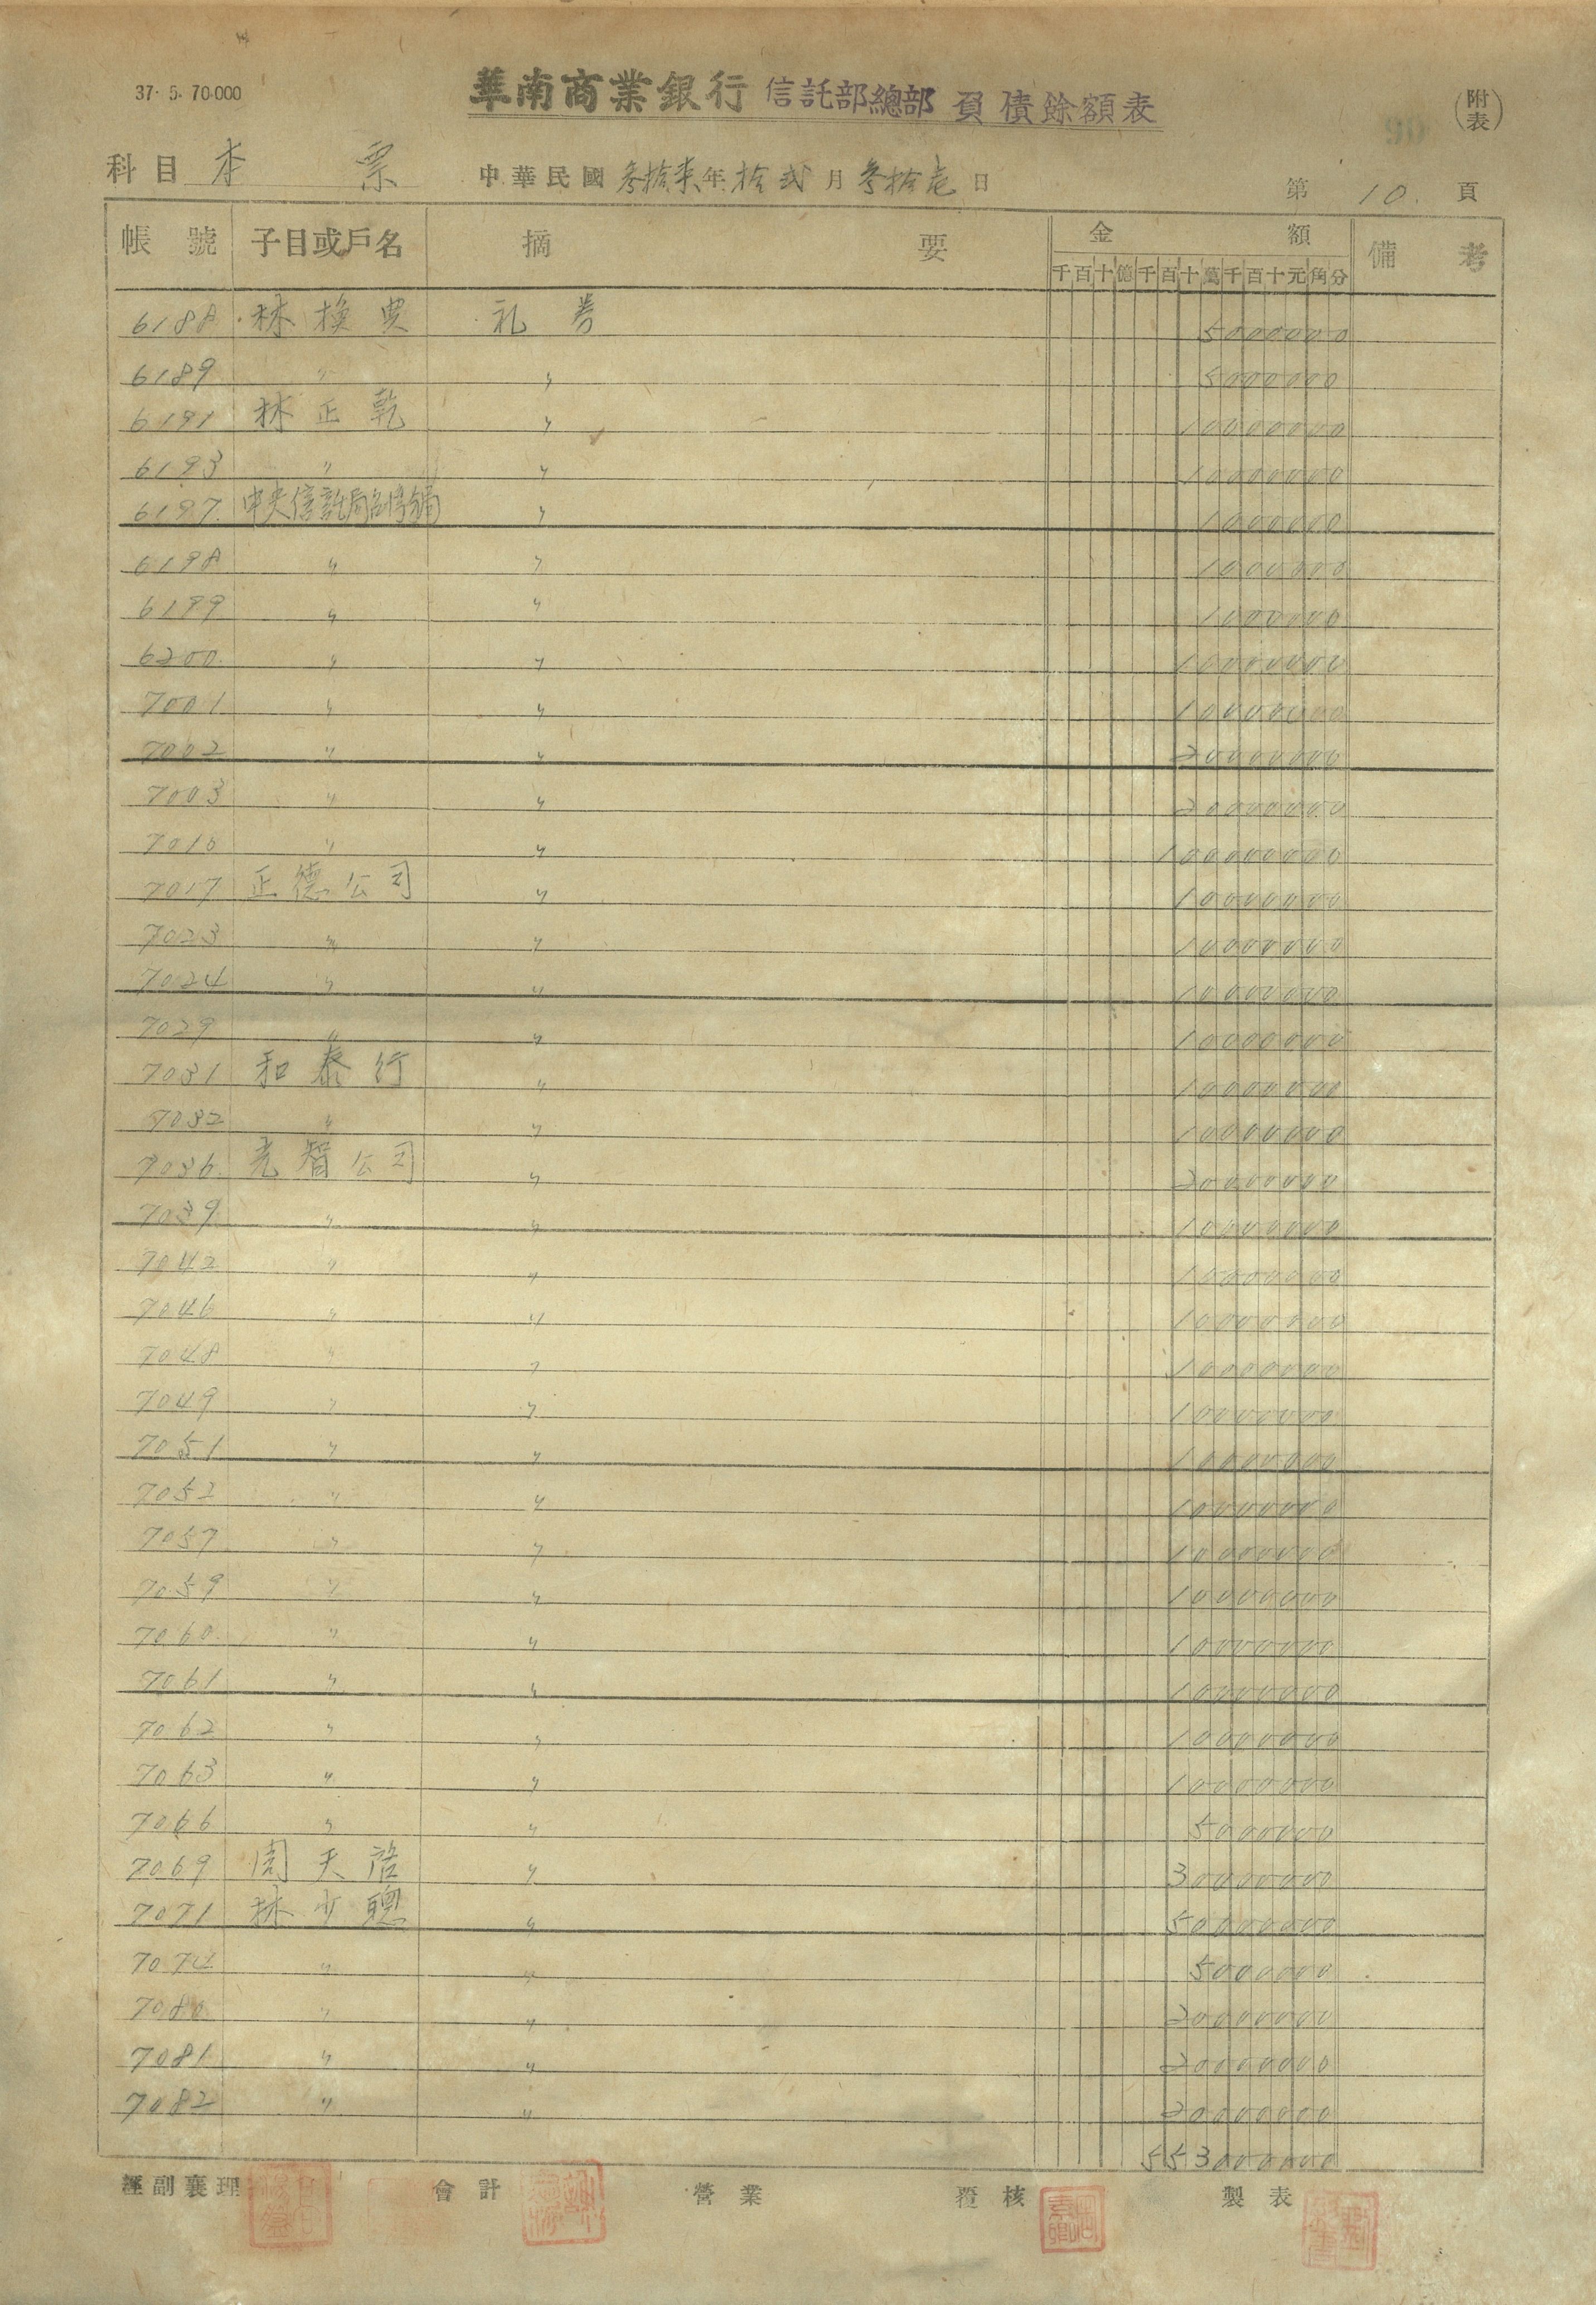 37. 5. 70.000
華南商業銀行 信託部總部 負債餘額表
(附表)
科目 本票 中華民國 叁拾柒年 拾貳月 叁拾壱日 第 10. 頁
帳號 子目或戶名 摘要 金額 備考
千百十億千百十萬千百十元角分
6188 林換 礼券 5000000
6189 〃 〃 5000000
6191 林正乾 〃 10000000
6193 〃 〃 10000000
6197 中央信託局 〃 1000000
6198 〃 〃 1000000
6199 〃 〃 1000000
6200 〃 〃 10000000
7001 〃 〃 10000000
7002 〃 〃 20000000
7003 〃 〃 20000000
7010 〃 〃 100000000
7017 正德公司 〃 10000000
7023 〃 〃 10000000
7024 〃 〃 10000000
7029 〃 〃 10000000
7031 和泰行 〃 10000000
7032 〃 〃 10000000
7036 光智公司 〃 20000000
7039 〃 〃 10000000
7042 〃 〃 10000000
7046 〃 〃 10000000
7048 〃 〃 10000000
7049 〃 〃 10000000
7051 〃 〃 10000000
7052 〃 〃 10000000
7057 〃 〃 10000000
7059 〃 〃 10000000
7060 〃 〃 10000000
7061 〃 〃 10000000
7062 〃 〃 10000000
7063 〃 〃 10000000
7066 〃 〃 5000000
7069 周天啓 〃 30000000
7071 林少聰 〃 50000000
7074 〃 〃 5000000
7080 〃 〃 20000000
7081 〃 〃 20000000
7082 〃 〃 20000000
553000000
經副襄理 會計 營業 覆核 製表